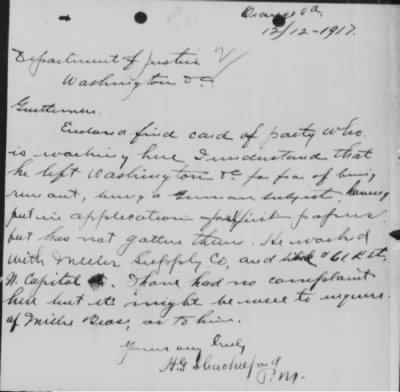 Orange Va
12/12-1917.
Department of Justice
Washington D.C.
Gentlemen.
Enclosed find card of party who
is working here I understand that
he left Washington DC for fear of being
run out, being a German subject, having
put in application for first papers
but has not gotten them. He worked
with Meeler Supply Co, and lived # 61 K St.
N. Capitol St. I have had no complaint
here but it might be well to enquire
of Miller Bros, as to him.
Yours very truly
H G Shackelford
P.M.